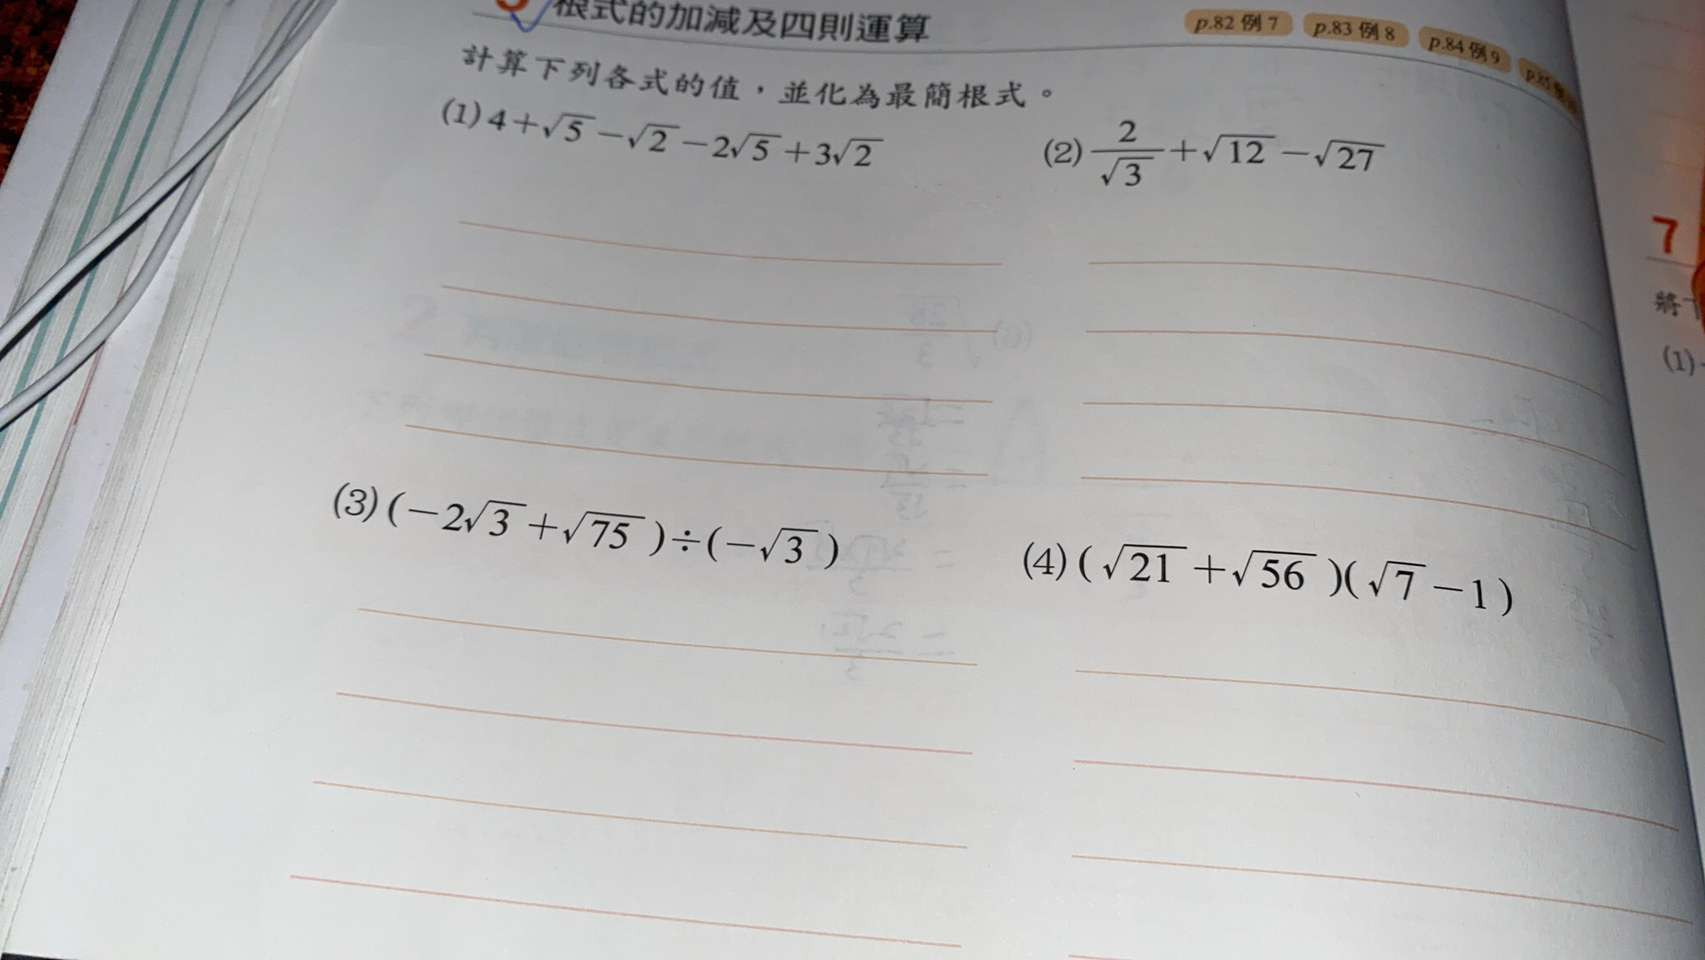 根式的加減及四則運算
p.82 例 7 p.83 例 8 p.84 例 9
計算下列各式的值，並化為最簡根式。
(1) 4+√5−√2−2√5+3√2
(2) 2/√3+√12−√27
(3) (−2√3+√75)÷(−√3)
(4) (√21+√56)(√7−1)
7
將
(1)